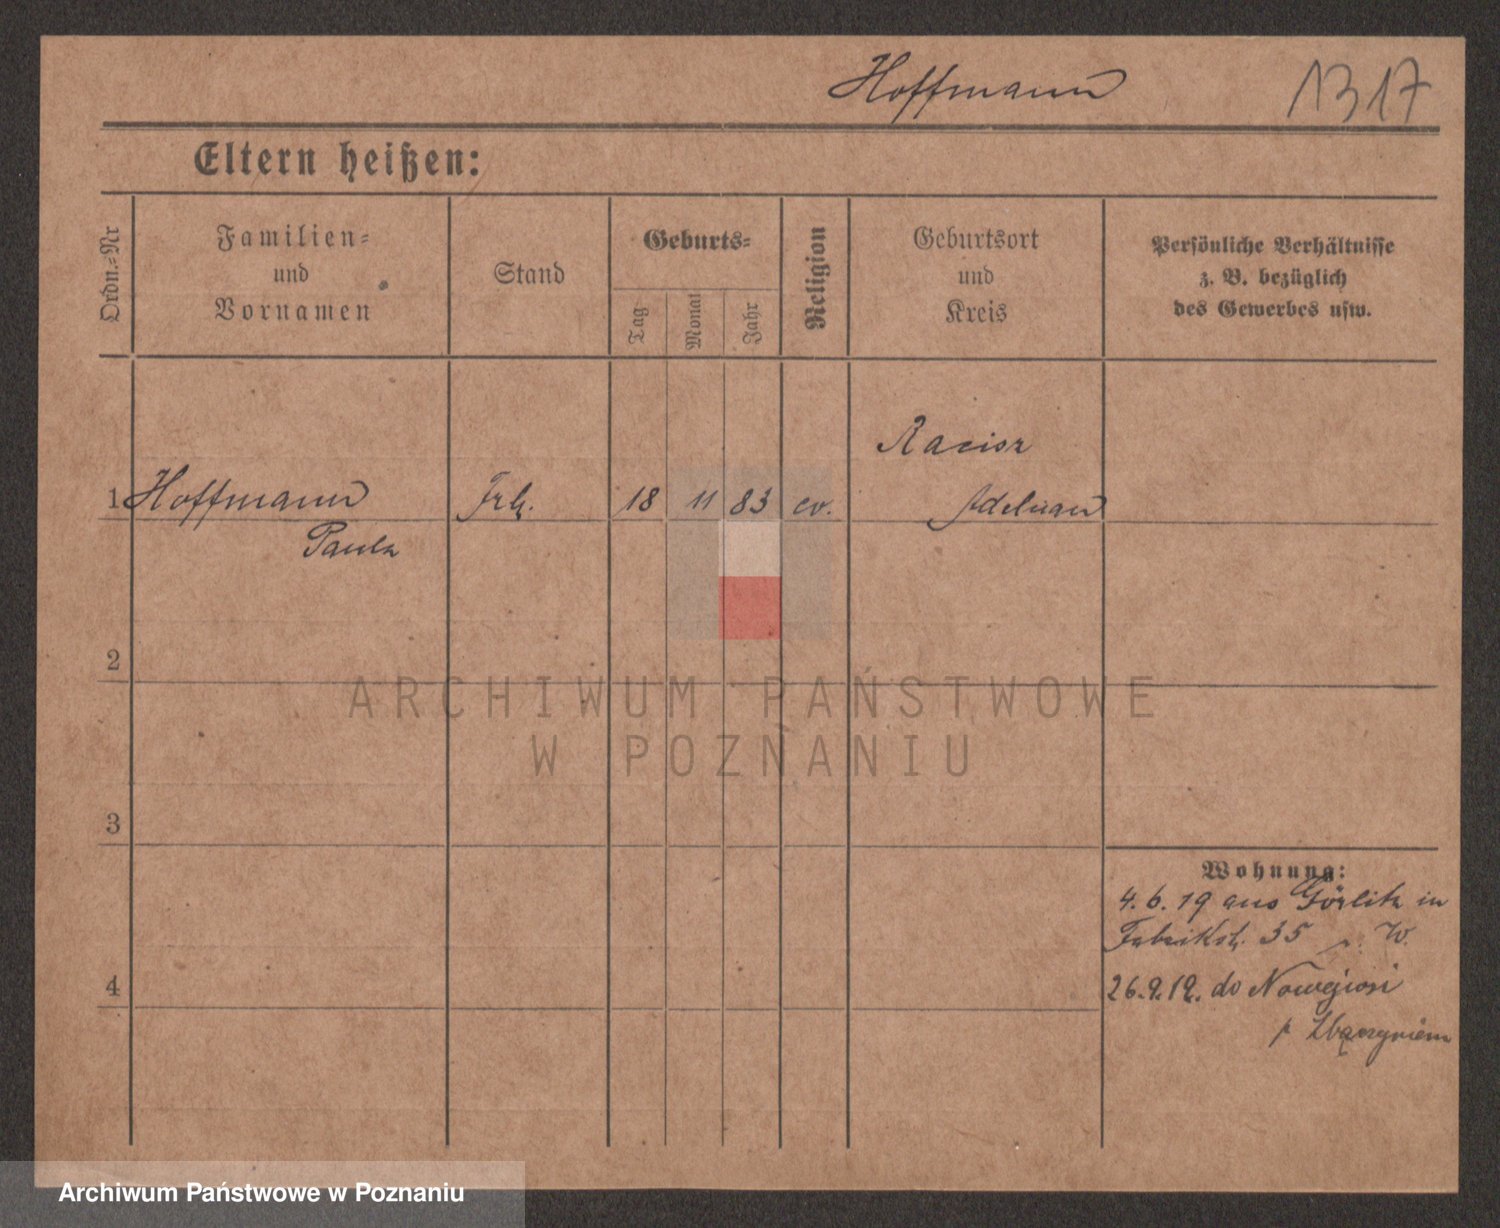 Hoffmann 1317
Eltern heißen:
Ordn.-Nr
Familien-
und
Vornamen
Stand
Geburts-
Tag
Monat
Jahr
Religion
Geburtsort
und
Kreis
Persönliche Verhältnisse
z. B. bezüglich
des Gewerbes usw.
Racisz
1 Hoffmann Frl. 18 11 83 ev. Adelnau
Paula
2
ARCHIWUM PAŃSTWOWE
W POZNANIU
3
Wohnung:
4. 6. 19 aus Görlitz in
Fabrikst. 35 W.
4
26.9.19. do
p Zbąszyniem
Archiwum Państwowe w Poznaniu